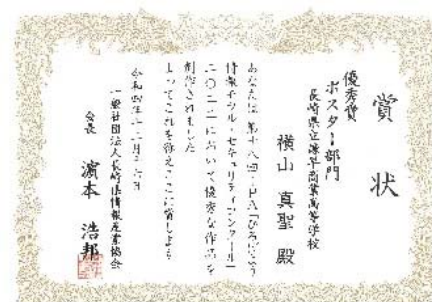 賞状
優秀賞
ポスター部門
長崎県立諫早商業高等学校
横山 真聖 殿
あなたは 第十八回IPA「ひろげよう
情報モラル・セキュリティコンクール」
二〇二二において優秀な作品を
創作されました
よってこれを称えここに賞します
令和四年十二月二十六日
一般社団法人長崎県情報産業協会
会長 濵本 浩邦